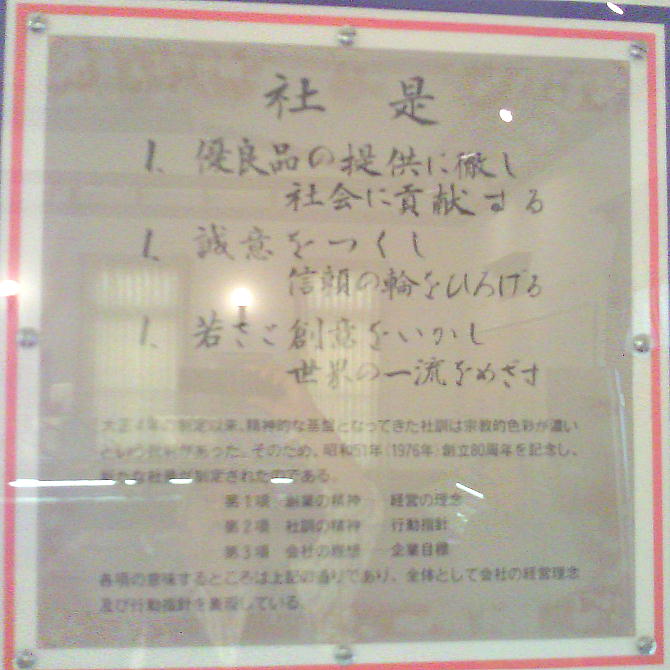 社是
1. 優良品の提供に徹し
社会に貢献する
1. 誠意をつくし
信頼の輪をひろげる
1. 若さと創意をいかし
世界の一流をめざす
大正4年の制定以来、精神的な基盤となってきた社訓は宗教的色彩が濃い
という批判があった。そのため、昭和51年(1976年)創立80周年を記念し、
新たな社是が制定されたのである。
第1項 創業の精神 経営の理念
第2項 社訓の精神 行動指針
第3項 会社の理想 企業目標
各項の意味するところは上記の通りであり、全体として会社の経営理念
及び行動指針を表現している。